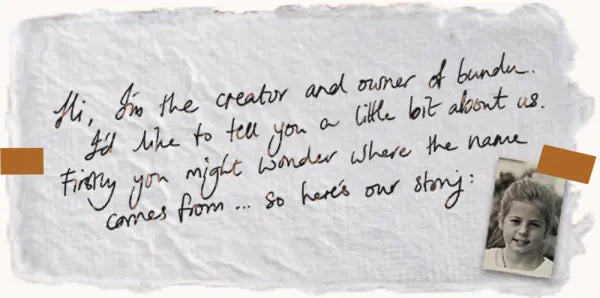 Hi, I'm the creator and owner of bundu.
I'd like to tell you a little bit about us.
Firstly you might wonder where the name
comes from... so here's our story: